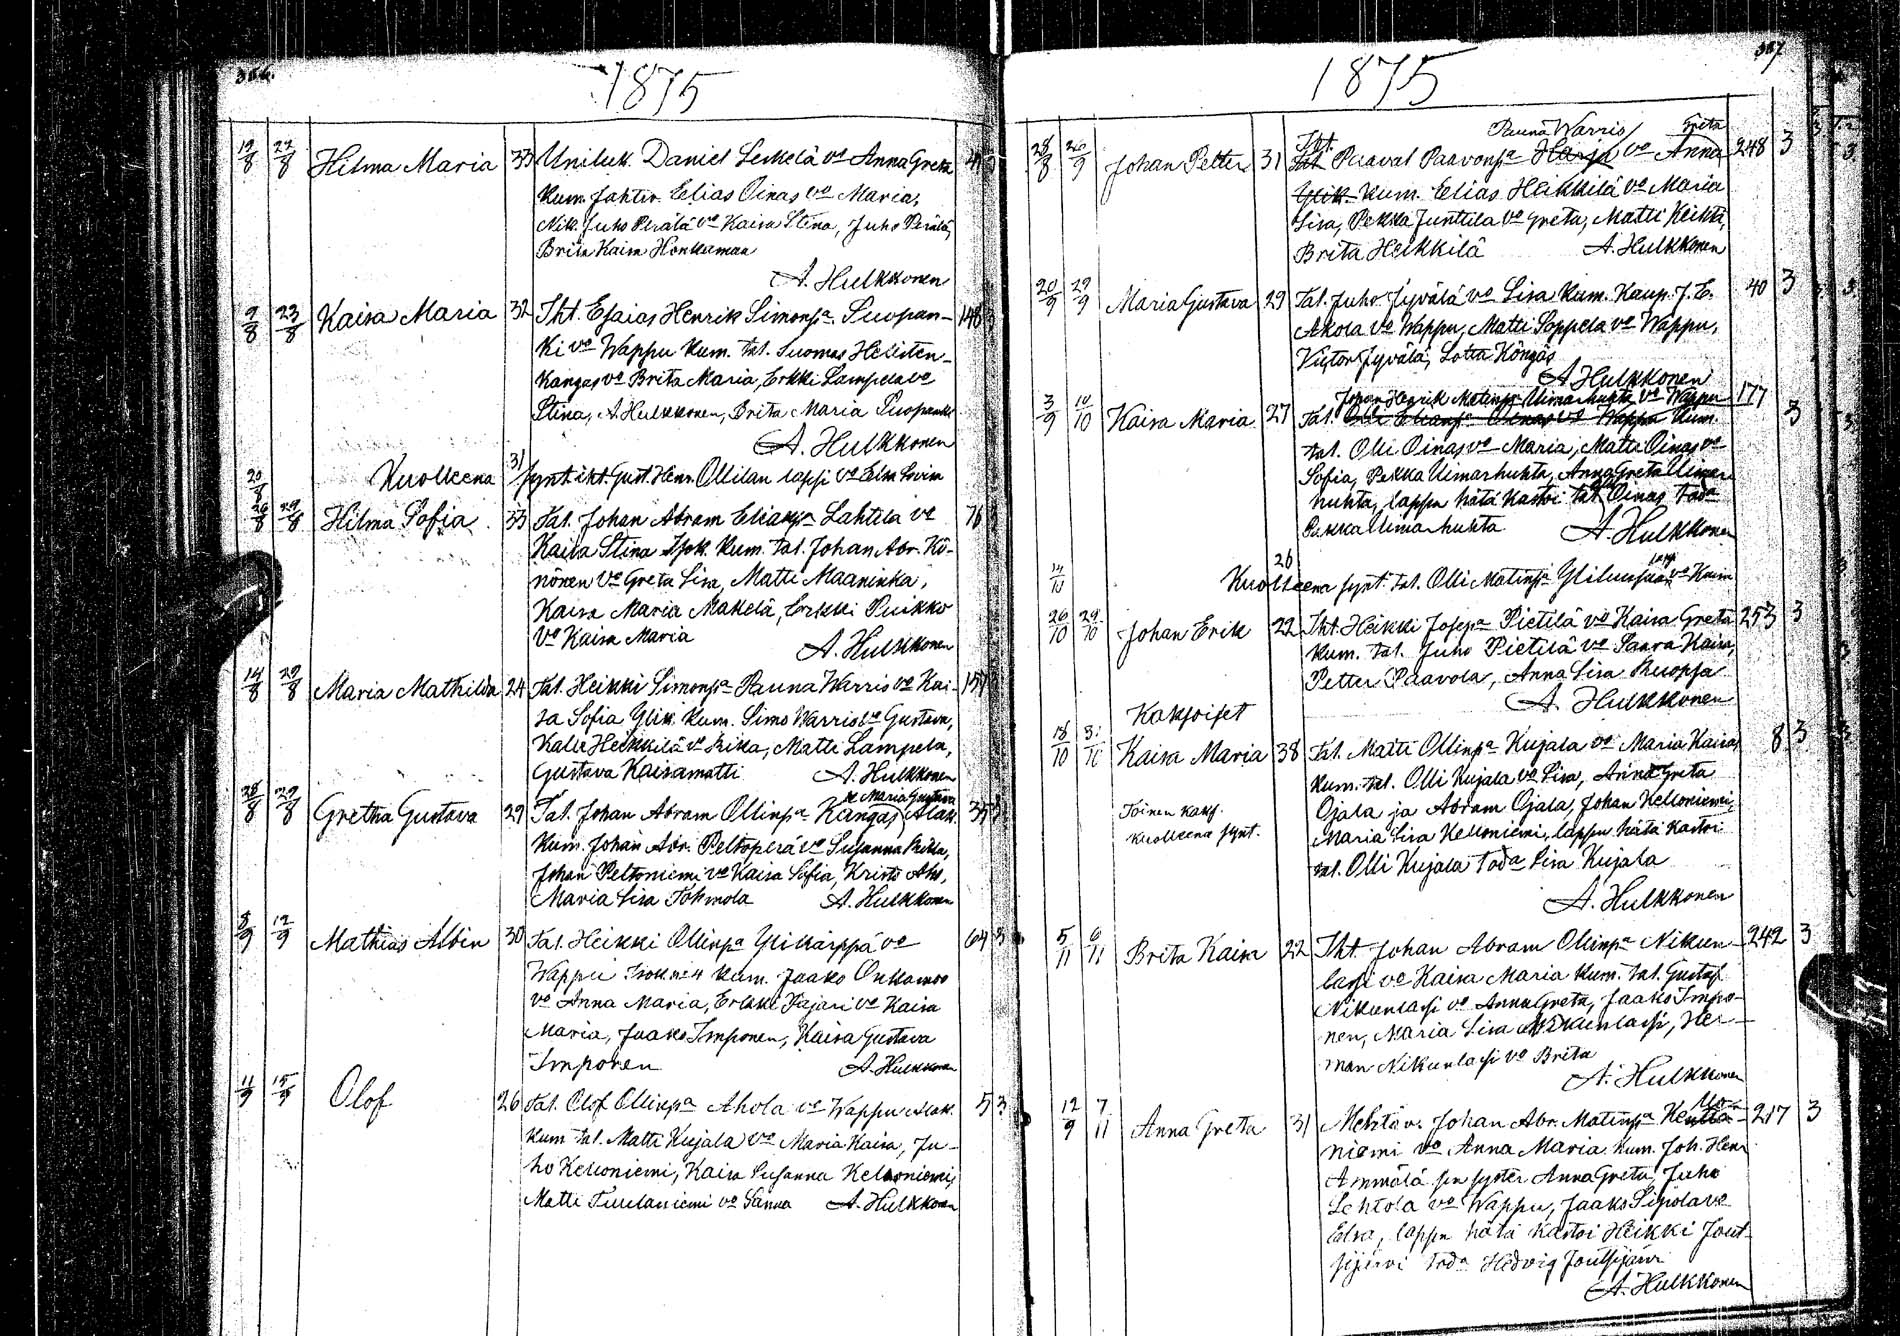 1875
12/8 22/8 Hilma Maria 33 Daniel Leskelä vo Anna Greta
Kum. Elias Oinas vo Maria,
Nik. Juho Perälä vo Kaisa Stina, Juho Perälä,
Brita Kaisa Honkamaa
A. Hulkkonen
9/8 23/8 Kaisa Maria 32 Iht. Esaias Henrik Simonpa Suopan- 148 3
ki vo Wappu Kum. tal. Tuomas Helisten-
kangas vo Brita Maria, Erkki Lampela vo
Stina, A. Hulkkonen, Brita Maria Suopanki
A. Hulkkonen
20/8 Kuolleena 31 synt. iht. Gust. Henr. Ollilan lapsi vo Elsa
26/8 29/8 Hilma Sofia 33 Tal. Johan Abram Eliaspa Lahtela vo 76
Kaisa Stina Kum. tal. Johan Abr. Kö-
nönen vo Greta Lisa, Matti Maaninka,
Kaisa Maria Makelä, Erkki Puikko
vo Kaisa Maria A. Hulkkonen
14/8 29/8 Maria Mathilda 24 Tal. Heikki Simonpa Pauna Warris vo Kai- 157
sa Sofia Ylik. Kum. Simo Warris vo Gustava,
Kalle Heikkilä vo Riika, Matti Lampela,
Gustava Kaisamatti A. Hulkkonen
vo Maria Gustava
28/8 29/8 Gretha Gustava 29 Tal. Johan Abram Ollinpa Kangas Alak. 35
Kum. Johan Abr. Peltoperä vo Susanna Riika,
Johan Peltoniemi vo Kaisa Sofia, Kristo Aho,
Maria Lisa Tohmola A. Hulkkonen
8/9 12/9 Mathias Albin 30 Tal. Heikki Ollinpa Ylikärppä vo 64 3
Wappu Kum. Jaako Onkamoo
vo Anna Maria, Erkki Hajari vo Kaisa
Maria, Jaako Imponen, Kaisa Gustava
Imponen A. Hulkkonen
11/9 15/9 Olof 26 Tal. Olof Ollinpa Ahola vo Wappu Alak. 5 3
Kum. tal. Matti Kujala vo Maria Kaisa, Ju-
ho Kelloniemi, Kaisa Susanna Kelloniemi,
Matti Tuulaniemi vo Sanna A. Hulkkonen
387
1875
Pauna Warris Greta
28/8 26/9 Johan Petter 31 Iht. Paaval Paavonpa Harju vo Anna 248 3
Ylik. Kum. Elias Heikkilä vo Maria
Lisa, Pekka Junttila vo Greta, Matti Keihtä,
Brita Heikkilä A. Hulkkonen
20/9 29/9 Maria Gustava 29 Tal. Juho Jyvälä vo Lisa Kum. Kaup. J. E. 40 3
Ahola vo Wappu, Matti Soppela vo Wappu,
Victor Jyvälä, Lotta Köngäs
A. Hulkkonen
Johan Henrik Matinpa Uimarhuhta vo Wappu
3/9 10/10 Kaisa Maria 27 Tal. Olli Eliaspa Oinas vo Wappu Kum. 177 3
tal. Olli Oinas vo Maria, Matti Oinas vo
Sofia, Pekka Uimarhuhta, Anna Greta Uimar-
huhta, lapsen hätä kastoi tal. Oinas toda
Pekka Uimarhuhta A. Hulkkonen
14/10 Kuolleena 26 synt. tal. Olli Matinpa Yliluusuan lapsi vo Kaisa
26/10 29/10 Johan Erik 22 Iht. Heikki Josepa Pietilä vo Kaisa Greta 253 3
Kum. tal. Juho Pietilä vo Saara Kaisa,
Petter Paavola, Anna Lisa Kuoppa
A. Hulkkonen
Kaksoiset
18/10 31/10 Kaisa Maria 38 Tal. Matti Ollinpa Kujala vo Maria Kaisa 8 3
Kum. tal. Olli Kujala vo Lisa, Anna Greta
Toinen kaks. Ojala ja Abram Ojala, Johan Kelloniemi,
kuolleena synt. Maria Lisa Kelloniemi, lapsen hätä kastoi
tal. Olli Kujala toda Lisa Kujala
A. Hulkkonen
5/11 6/11 Brita Kaisa 22 Iht. Johan Abram Ollinpa Nikun- 242 3
lasi vo Kaisa Maria Kum. tal. Gustaf
Nikunlasi vo Anna Greta, Jaako Impo-
nen, Maria Lisa Nikunlasi, Her-
man Nikunlasi vo Brita
A. Hulkkonen
12/9 7/11 Anna Greta 31 Mehtäv. Johan Abr. Matinpa 217 3
niemi vo Anna Maria Kum. Joh. Henr.
Ämmälä sen syster Anna Greta, Juho
Lehtola vo Wappu, Jaako Sipola vo
Elsa, lapsen hätä kastoi Heikki Jout-
sijärvi toda Hedvig Joutsijärvi
A. Hulkkonen